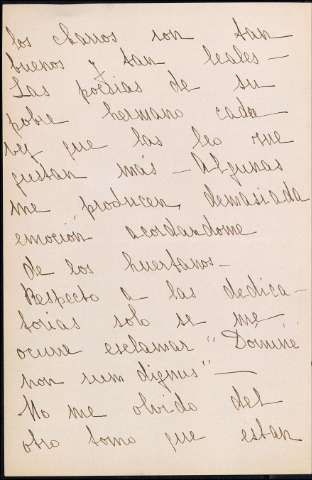 los charros son tan
buenos y tan leales—
Las poesias de su
pobre hermano cada
vez que las leo me
gustan más— Algunas
me producen, demasiada
emoción acordandome
de los huerfanos—
Respecto a las dedica—
torias solo se me
ocurre esclamar "Domine
non sum dignus"—
No me olvido del
otro tomo que estan